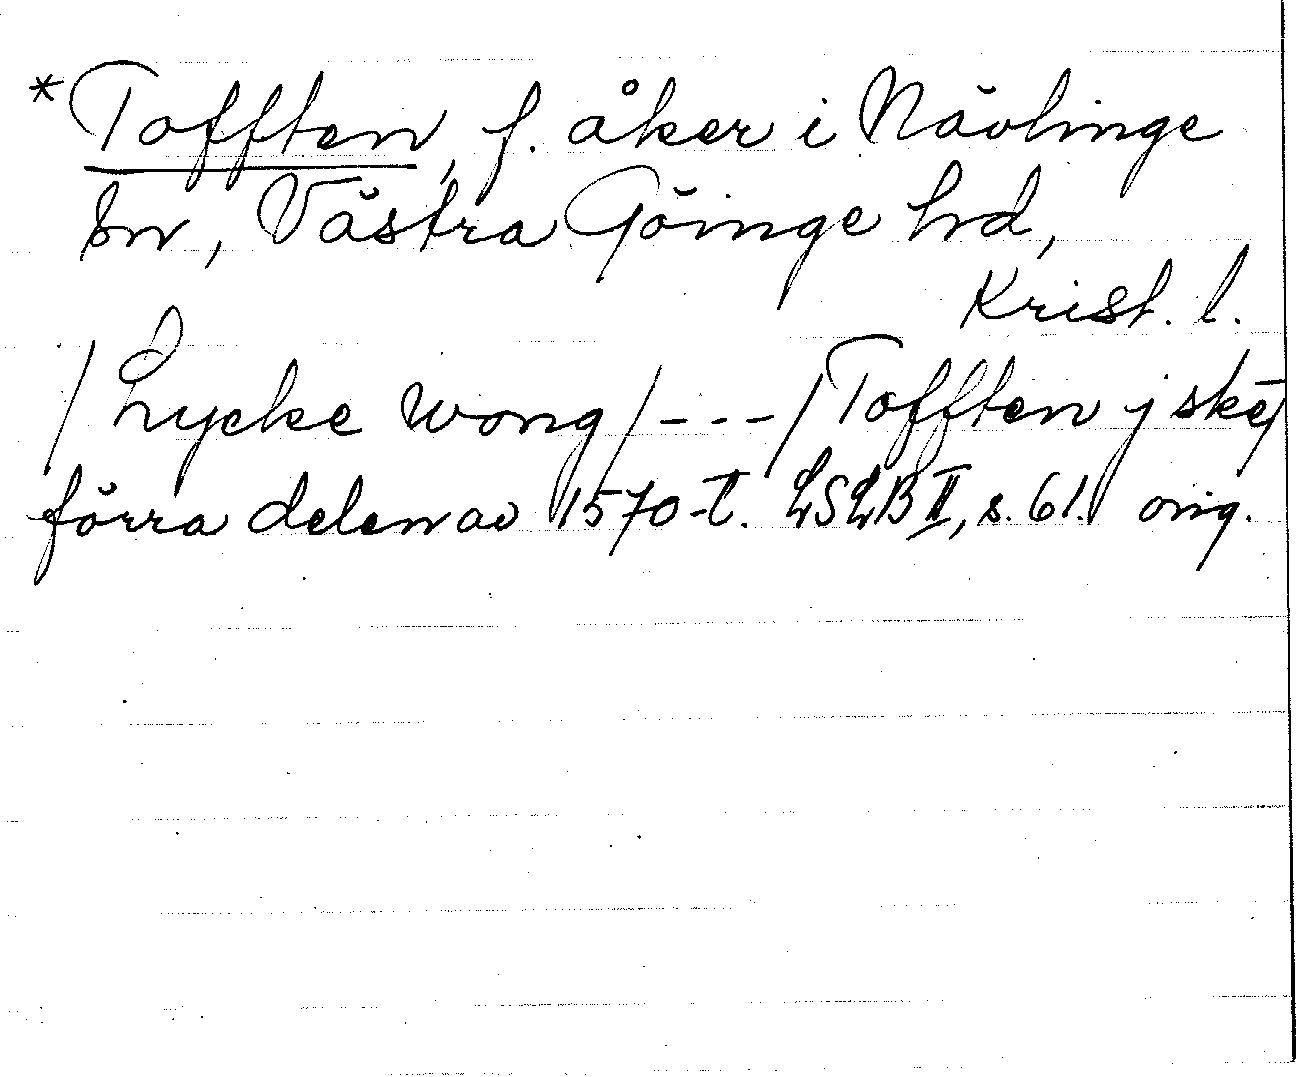 * Tofften, f. åker i Nävlinge
sn, Västra Göinge hd,
Krist. l.
/ Lycke wong / - - - / Tofften j skej
förra delen av 1570-t. LSLB II, s. 61. orig.